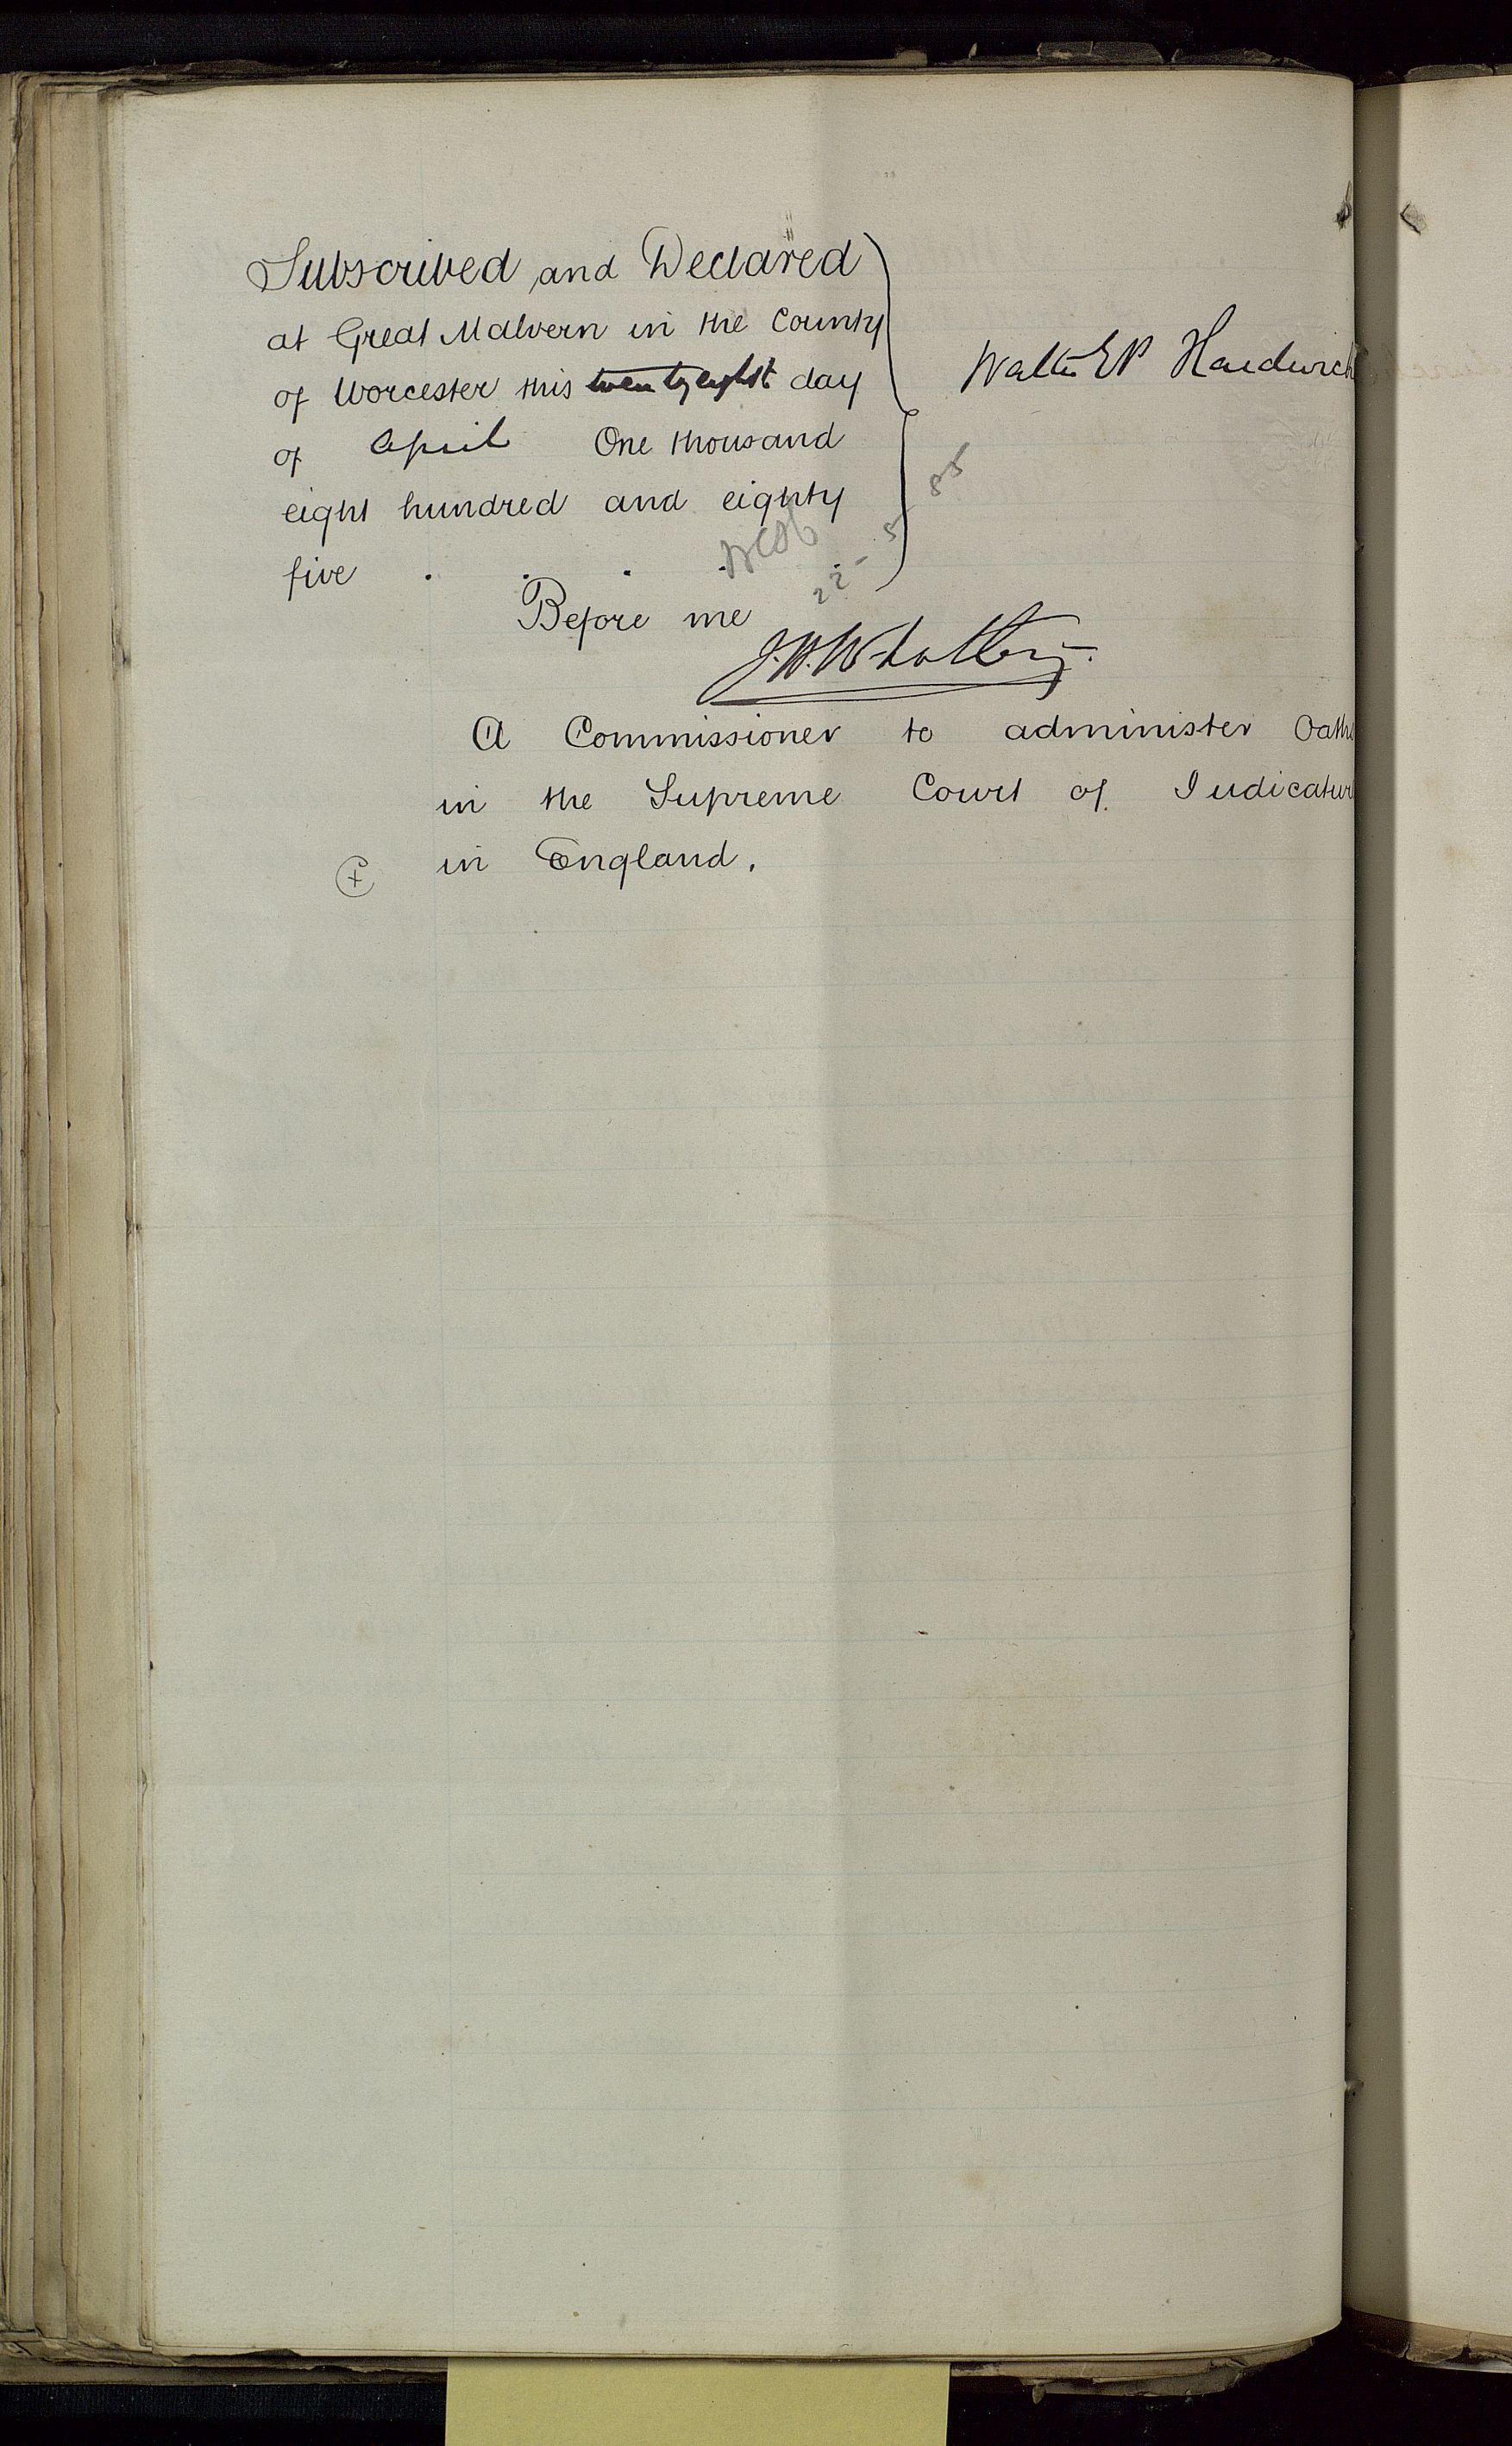 Subscribed and Declared
at Great Malvern in the County
of Worcester this twenty eight day
of April One thousand
eight hundred and eighty
five . . . . .
Walter EP Hardwick
22-5-85
Before me
J.W. Whatley
A Commissioner to administer Oaths
in the Supreme Court of Judicature
in England.